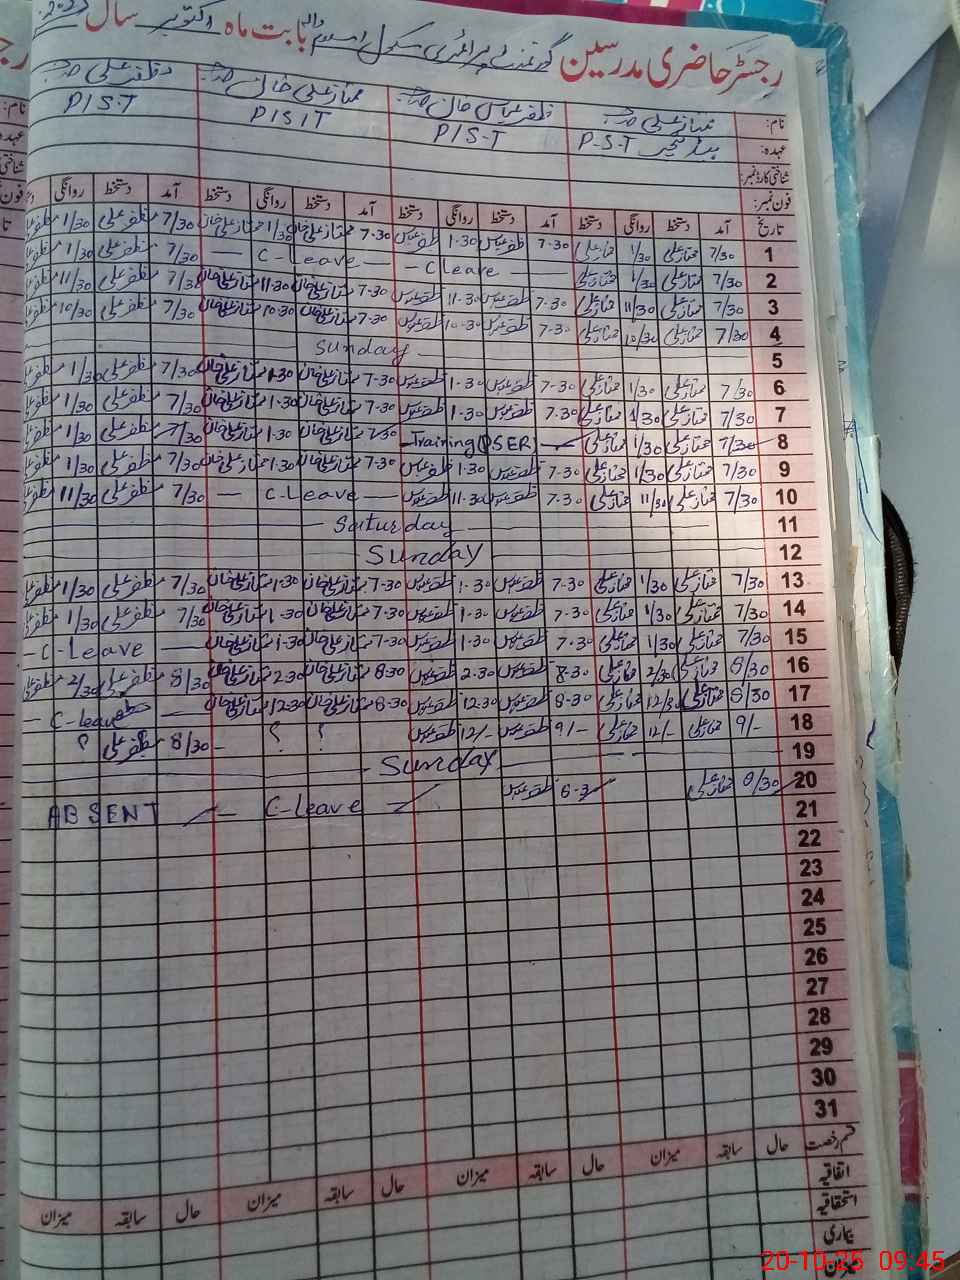 رجسٹر حاضری مدرسین گورنمنٹ پرائمری سکول بابت ماہ اکتوبر سال
نام: ممتاز علی ظفر عباس خان ممتاز علی خان مظفر علی
عہدہ: ہیڈ ٹیچر P-S-T P/S-T P/S/T P/S-T
شناختی کارڈ نمبر:
فون نمبر:
تاریخ آمد دستخط روانگی دستخط آمد دستخط روانگی دستخط آمد دستخط روانگی دستخط آمد دستخط روانگی
1 7/30 ممتاز علی 1/30 ممتاز علی 7-30 ظفر عباس 1-30 ظفر عباس 7-30 ممتاز علی خان 1/30 ممتاز علی خان 7/30 مظفر علی 1/30
2 7/30 ممتاز علی 1/30 ممتاز علی — C leave — — C-Leave — 7/30 مظفر علی 1/30
3 7/30 ممتاز علی 11/30 ممتاز علی 7-30 ظفر عباس 11-30 ظفر عباس 7-30 ممتاز علی خان 11-30 ممتاز علی خان 7/30 مظفر علی 11/30
4 7/30 ممتاز علی 10/30 ممتاز علی 7-30 ظفر عباس 10-30 ظفر عباس 7-30 ممتاز علی خان 10-30 ممتاز علی خان 7/30 مظفر علی 10/30
5 Sunday
6 7/30 ممتاز علی 1/30 ممتاز علی 7-30 ظفر عباس 1-30 ظفر عباس 7-30 ممتاز علی خان 1-30 ممتاز علی خان 7/30 مظفر علی 1/30
7 7/30 ممتاز علی 1/30 ممتاز علی 7-30 ظفر عباس 1-30 ظفر عباس 7-30 ممتاز علی خان 1-30 ممتاز علی خان 7/30 مظفر علی 1/30
8 7/30 ممتاز علی 1/30 ممتاز علی Training 7-30 ممتاز علی خان 1-30 ممتاز علی خان 7/30 مظفر علی 1/30
9 7/30 ممتاز علی 1/30 ممتاز علی 7-30 ظفر عباس 1-30 ظفر عباس 7-30 ممتاز علی خان 1-30 ممتاز علی خان 7/30 مظفر علی 1/30
10 7/30 ممتاز علی 11/30 ممتاز علی 7-30 ظفر عباس 11-30 ظفر عباس — C-Leave — 7/30 مظفر علی 11/30
11 Saturday
12 Sunday
13 7/30 ممتاز علی 1/30 ممتاز علی 7-30 ظفر عباس 1-30 ظفر عباس 7-30 ممتاز علی خان 1-30 ممتاز علی خان 7/30 مظفر علی 1/30
14 7/30 ممتاز علی 1/30 ممتاز علی 7-30 ظفر عباس 1-30 ظفر عباس 7-30 ممتاز علی خان 1-30 ممتاز علی خان 7/30 مظفر علی 1/30
15 7/30 ممتاز علی 1/30 ممتاز علی 7-30 ظفر عباس 1-30 ظفر عباس 7-30 ممتاز علی خان 1-30 ممتاز علی خان — C-Leave —
16 8/30 ممتاز علی 2/30 ممتاز علی 8-30 ظفر عباس 2-30 ظفر عباس 8-30 ممتاز علی خان 2-30 ممتاز علی خان 8/30 مظفر علی 2/30
17 8/30 ممتاز علی 12/30 ممتاز علی 8-30 ظفر عباس 12-30 ظفر عباس 8-30 ممتاز علی خان 12-30 ممتاز علی خان — C-leave —
18 9/- ممتاز علی 12/- ممتاز علی 9/- ظفر عباس 12/- ظفر عباس ? ? 8/30 مظفر علی ?
19 Sunday
20 8/30 ممتاز علی 8-30 ظفر عباس — C-Leave ABSENT
21
22
23
24
25
26
27
28
29
30
31
قسم رخصت حال سابقہ میزان حال سابقہ میزان حال سابقہ میزان حال سابقہ میزان
اتفاقیہ
استحقاقیہ
بیماری
میزان
20-10-25 09:45